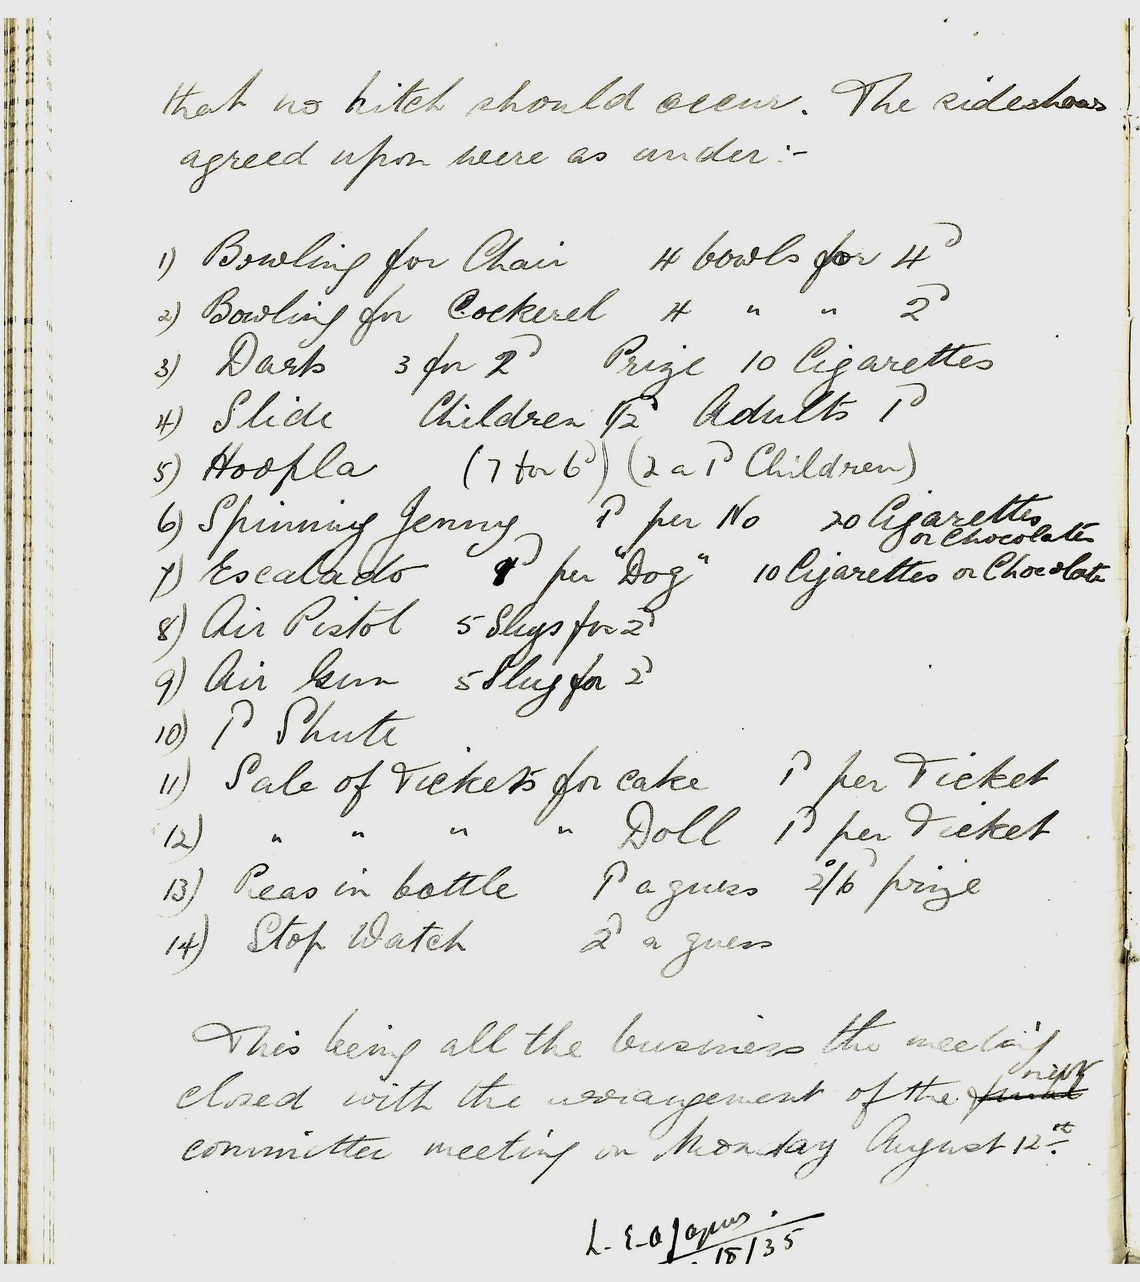 that no hitch should occur. The sideshows
agreed upon were as under :-
1) Bowling for Chair 4 bowls for 4ᴰ
2) Bowling for Cockerel 4 " " 2ᴰ
3) Darts 3 for 2ᴰ Prize 10 Cigarettes
4) Slide Children ½ᴰ Adults 1ᴰ
5) Hoopla (7 for 6ᴰ) (2 a 1ᴰ Children)
6) Spinning Jenny 1ᴰ per No 20 Cigarettes
or Chocolates
7) Escalado 1ᴰ per "Dog" 10 Cigarettes or Chocolate
8) Air Pistol 5 Slugs for 2ᴰ
9) Air Gun 5 Slug for 2ᴰ
10) 1ᴰ Shute
11) Sale of Tickets for cake 1ᴰ per Ticket
12) " " " " Doll 1ᴰ per Ticket
13) Peas in bottle 1ᴰ a guess 2/6ᴰ prize
14) Stop Watch 2ᴰ a guess
This being all the business the meeting
closed with the arrangement of the next
committee meeting on Monday August 12th.
L. E.
/8/35